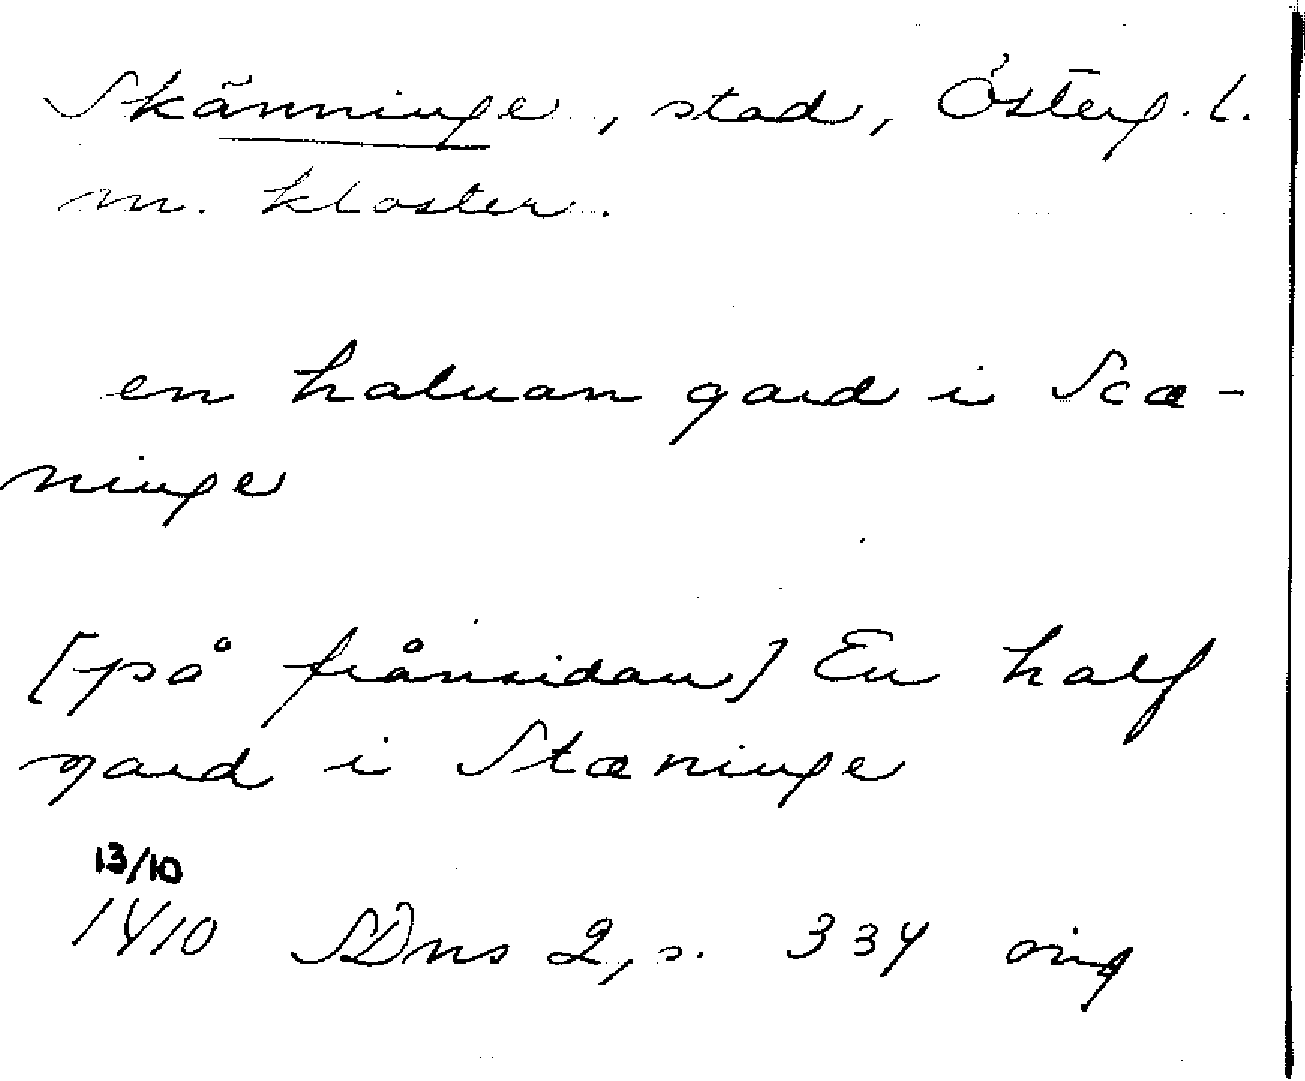 Skänninge, stad, Österg. l.
m. kloster.
en haluan gard i Scæ-
ninge
[på frånsidan] En half
gard i Stæninge
13/10
1410 SDns 2, s. 334 orig